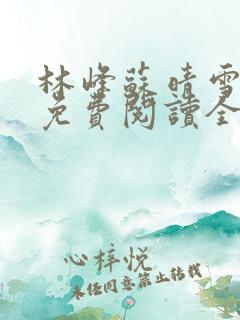 林峰蘇晴雪
免費閱讀全
心梓悅
未经同意禁止转载